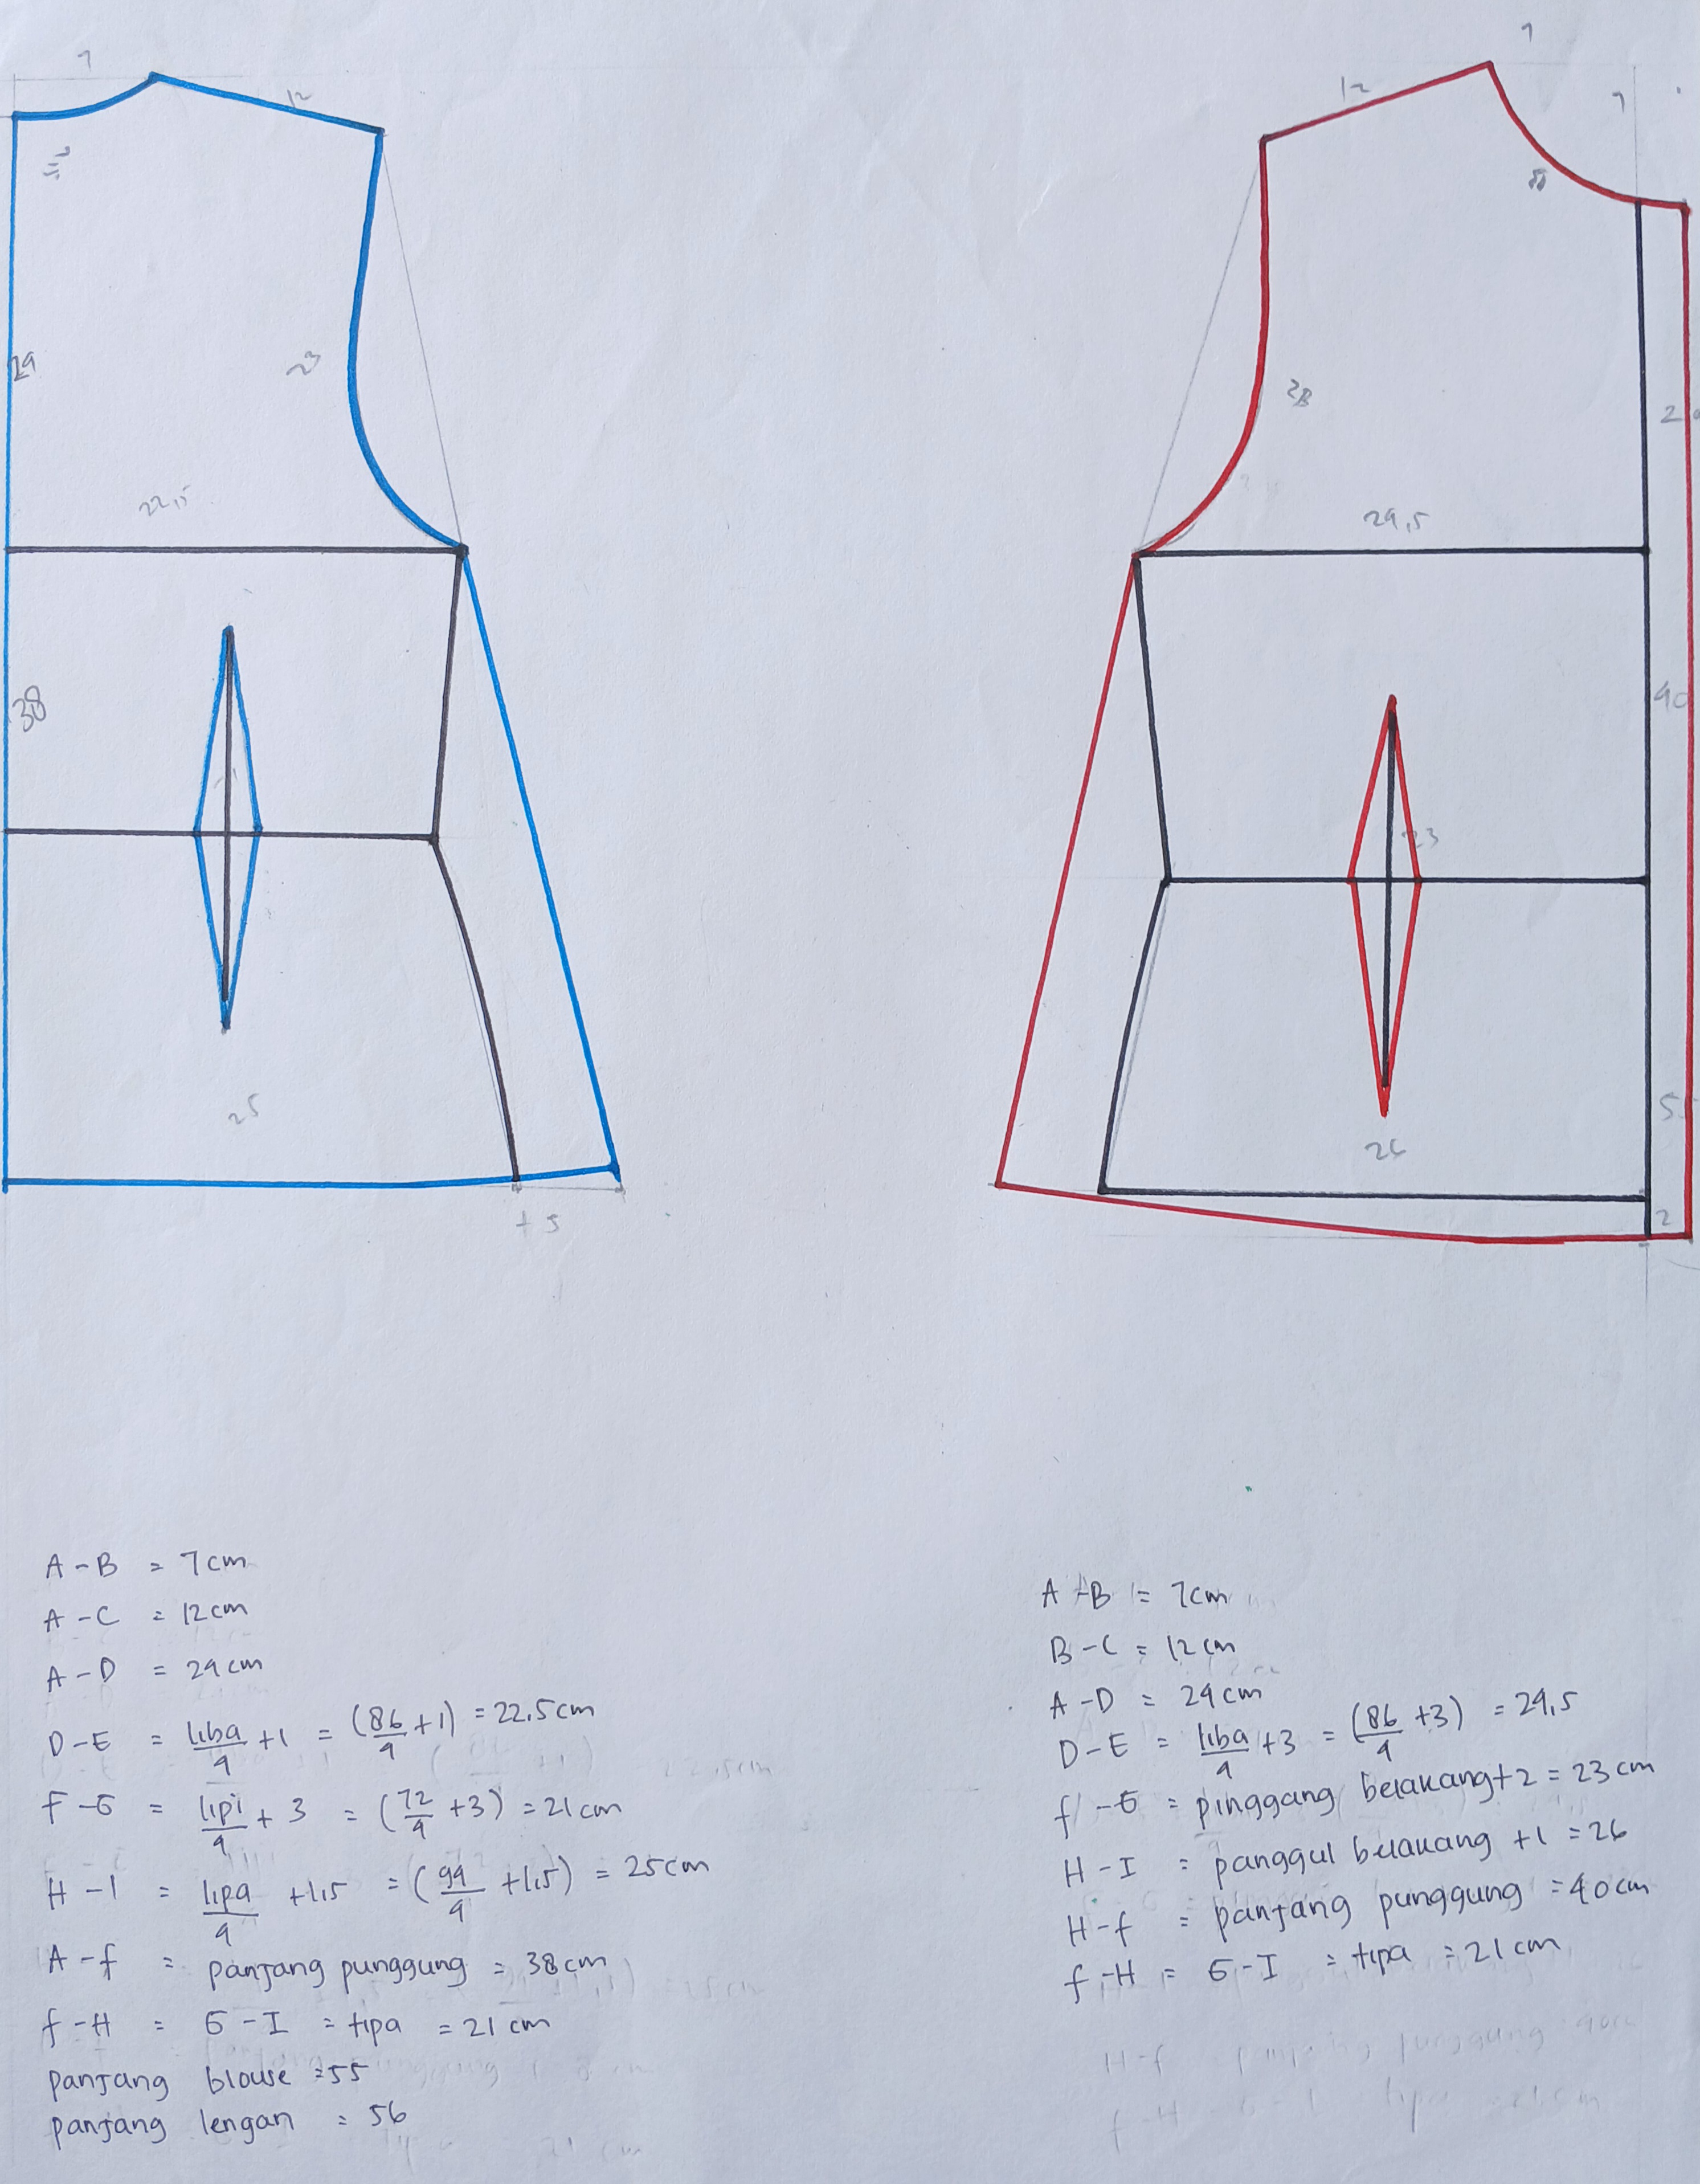 7
12
23
24
22,5
38
25
+5
7
12
7
23
29,5
40
23
26
2
A - B = 7 cm
A - C = 12 cm
A - D = 24 cm
D - E = liba/4 + 1 = (86/4 + 1) = 22,5 cm
F - G = lipi/4 + 3 = (72/4 + 3) = 21 cm
H - I = lipa/4 + 1,5 = (94/4 + 1,5) = 25 cm
A - f = panjang punggung = 38 cm
f - H = G - I = tipa = 21 cm
panjang blouse = 55
panjang lengan = 56
A - B = 7 cm
B - C = 12 cm
A - D = 24 cm
D - E = liba/4 + 3 = (86/4 + 3) = 24,5
f - G = pinggang belakang + 2 = 23 cm
H - I = panggul belakang + 1 = 26
H - f = panjang punggung = 40 cm
f - H = G - I = tipa = 21 cm